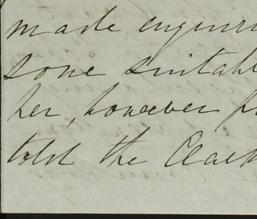 made enquiri
some suitabl
her, however f
told the Clerk